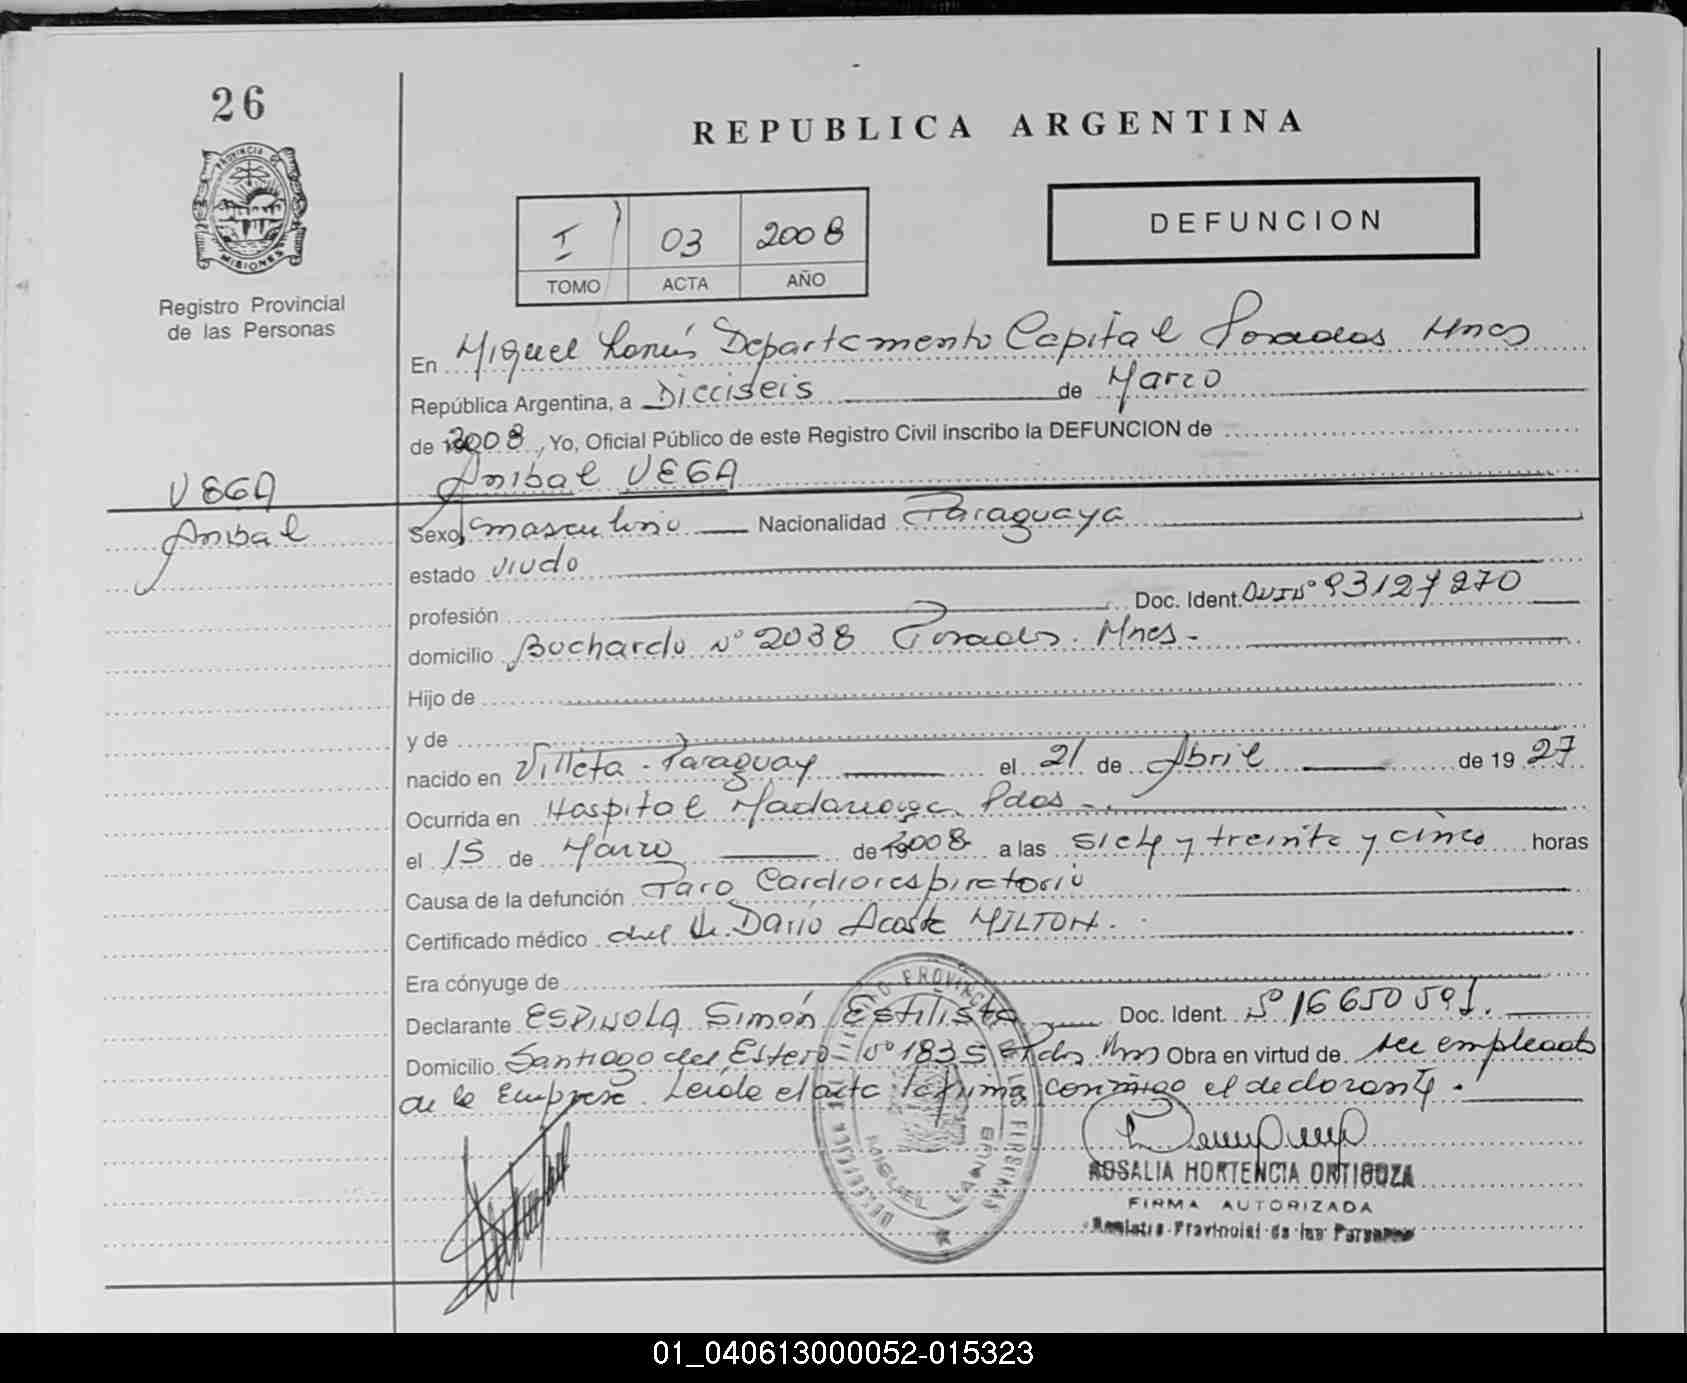 26
REPUBLICA ARGENTINA
PROVINCIA DE
MISIONES
Registro Provincial
de las Personas
I 03 2008
TOMO ACTA AÑO
DEFUNCION
En Miguel Lanús Departamento Capital Posadas Mnes
República Argentina, a Dieciseis de Marzo
de 2008, Yo, Oficial Público de este Registro Civil inscribo la DEFUNCION de
Anibal VEGA
VEGA
Anibal
Sexo masculino Nacionalidad Paraguaya
estado viudo
profesión Doc. Ident. DNI Nº 93127270
domicilio Buchardo Nº 2038 Posadas. Mnes-
Hijo de
y de
nacido en Villeta - Paraguay el 21 de Abril de 1927
Ocurrida en Hospital Madariaga Pdas-
el 15 de Marzo de 2008 a las siete y treinta y cinco horas
Causa de la defunción Paro Cardiorespiratorio
Certificado médico del Dr. Dario Acosta MILTON.
Era cónyuge de
Declarante ESPINOLA Simón Estilista Doc. Ident. Nº 16650591.
Domicilio Santiago del Estero Nº 1835 Pdas Mnes Obra en virtud de ser empleado
de la Empresa. Leída el acta la firma conmigo el declarante.
MIGUEL LANUS
ROSALIA HORTENCIA ORTIGOZA
FIRMA AUTORIZADA
Registro Provincial de las Personas
01_040613000052-015323